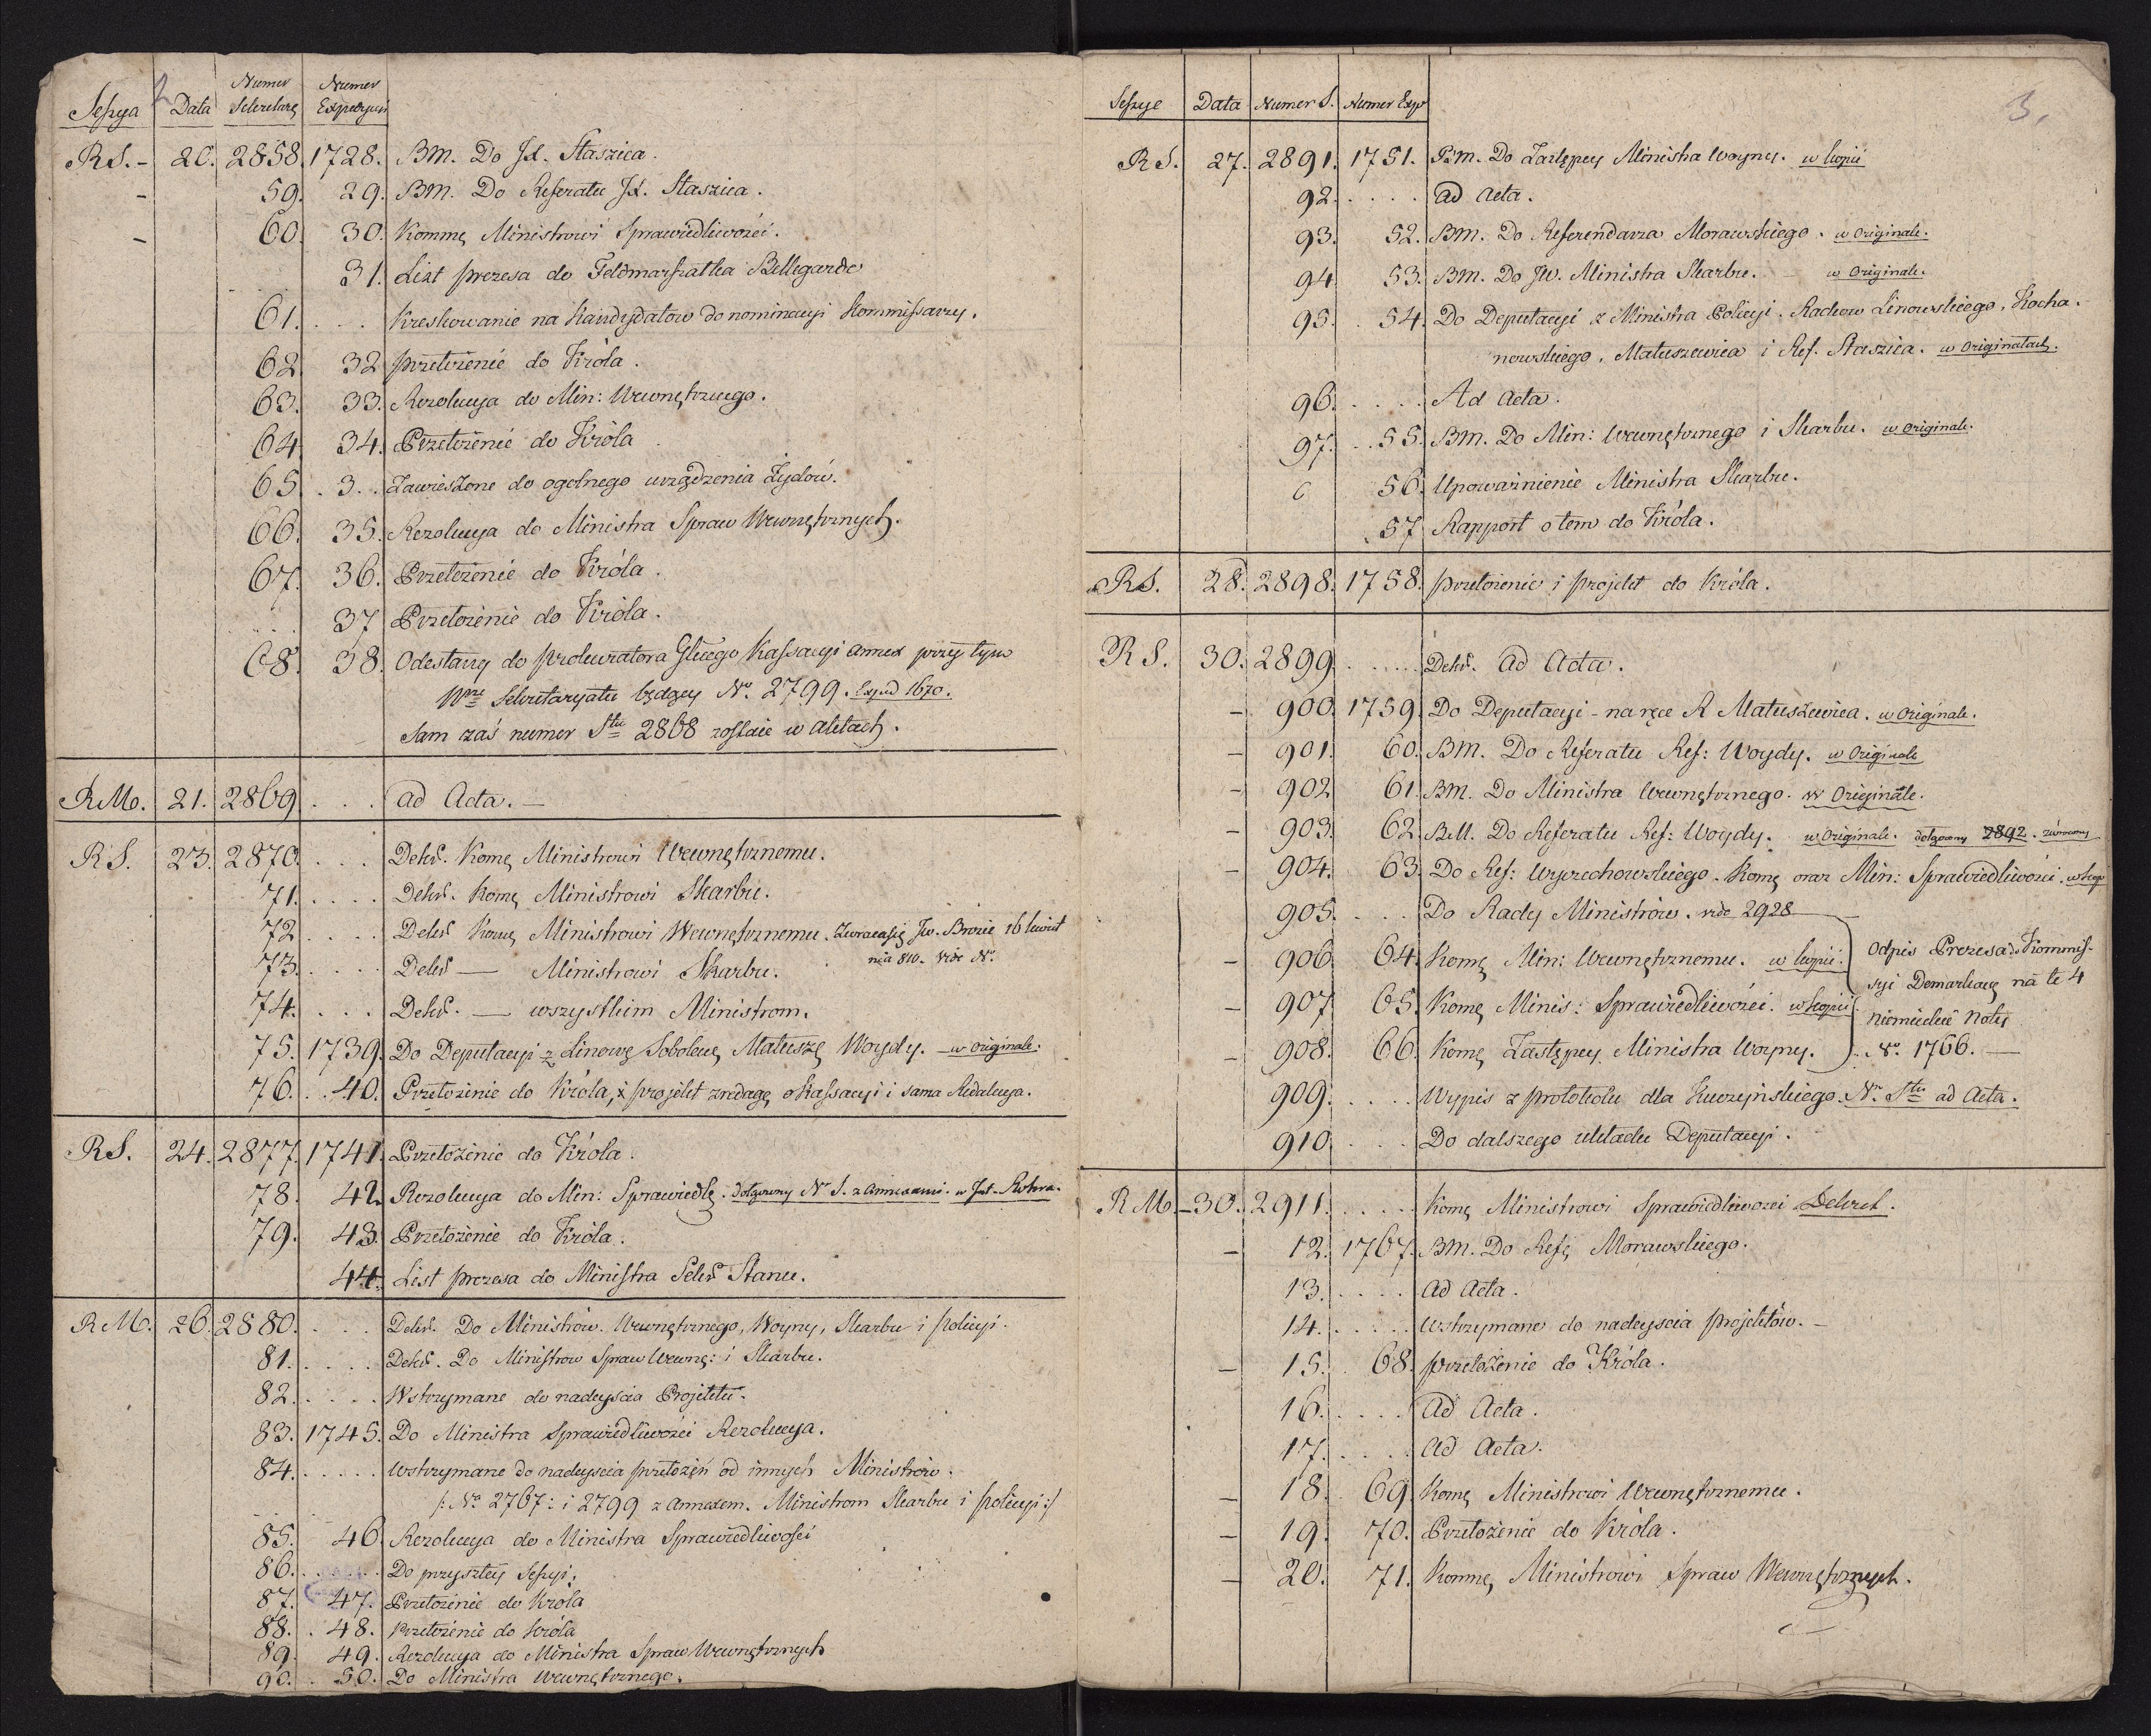 2
Sessya Data Numer Sekretarę Numer Expedycyi
RS. - 20. 2858. 1728. BM. Do JX. Staszica.
- 59. 29. BM. Do Referatu JX. Staszica.
- 60. 30. Kommę Ministrowi Sprawiedliwości.
31. List prezesa do Feldmarszałka Bellegarde
61. . . . Kreskowanie na Kandydatów do nominacyi Kommissarzy.
62. 32 przełożenie do Króla.
63. 33. Rezolucya do Min: Wewnętrznego.
64. 34. Przełożenie do Króla.
65. . 3. . Zawieszone do ogolnego urządzenia Żydów.
66. 35. Rezolucya do Ministra Spraw Wewnętrznych.
67. 36. Przełożenie do Króla.
37 Przełożenie do Króla.
68. 38. Odesłany do prokuratora Głnego Kassacyi annex przy tym
Nrze Sekretaryatu będący No. 2799. Exped 1670.
Sam zaś numer Stu 2868 zostaie w aktach.
RM. 21. 2869. . . . ad Acta. -
RS. 23. 2870. . . . Dekr. Komę Ministrowi Wewnętrznemu.
71. . . . . Dekr. Komę Ministrowi Skarbu.
72 . . . . Dekr Komę Ministrowi Wewnętrznemu. Zwraca się Jw. Brezie 16 kwiet
nia 810. vide No.
73. . . . . Dekr — Ministrowi Skarbu.
74. . . . Dekr. — wszystkim Ministrom.
75. 1739. Do Deputacyi z Linowę Sobolewę, Matuszę Woydy. w originale.
76. . . 40. Przełożenie do Króla, i projekt zredagę o Kassacyi i sama Redakcya.
RS. 24. 2877. 1741. Przełożenie do Króla.
78. 42. Rezolucya do Min: Sprawiedlę. dołączony No S. z annexami.
79. 43. Przełożenie do Króla.
44. List prezesa do Ministra Sekr Stanu.
RM. 26. 2880. . . . Dekr. Do Ministrów. Wewnętrznego, Woyny, Skarbu i policyi.
81. . . . . Dekr. Do Ministrow Spraw Wewnę: i Skarbu.
82. . . . . Wstrzymane do nadeyscia Projektu.
83. 1745. Do Ministra Sprawiedliwości Rezolucya.
84. . . . . . Wstrzymane do nadeyscia przełożeń od innych Ministrow.
/: No 2767: i 2799 z annexem. Ministrom Skarbu i policyi :/
85. 46. Rezolucya do Ministra Sprawiedliwości
86. . . . . . Do przyszłey Sessyi.
87. 47. Przełożenie do Króla
88. . 48. Przełożenie do Króla
89. 49. Rezolucya do Ministra Spraw Wewnętrznych
90. . 50. Do Ministra Wewnętrznego.
3.
Sessye Data Numer S. Numer Exp
RS. 27. 2891. 1751. BM. Do Zastępcy Ministra Woyny. w kopii
92. . . . . ad acta.
93. 52. BM. Do Referendarza Morawskiego. w originale.
94 53. BM. Do JW. Ministra Skarbu. - w originale.
95. . 54. Do Deputacyi z Ministra Policyi. Radcow Linowskiego, Kocha.
nowskiego, Matuszewica i Ref. Staszica. w originałach.
96. . . . . Ad acta.
97. . . 55. BM. Do Min: Wewnętrznego i Skarbu. w originale.
56. Upoważnienie Ministra Skarbu.
57 Rapport o tem do Króla.
RS. 28. 2898. 1758. przełożenie i projekt do Króla.
RS. 30. 2899. . . . . . Dekr. ad Acta.
- 900. 1759. Do Deputacyi - na ręce R Matuszewica. w originale.
- 901. 60. BM. Do Referatu Ref: Woydy. w originale
- 902 61. BM. Do Ministra Wewnętrznego. w Originale.
- 903. 62. BM. Do Referatu Ref: Woydy. w originale. dołączony 2892. zwrocony
- 904. 63. Do Ref: Wyczechowskiego. Komę oraz Min: Sprawiedliwości. w kop
905. . . . Do Rady Ministrów. vide 2928
- 906 64. Komę Min: Wewnętrznemu. w kopii.
Odpis Prezesa Kommis-
syi Demarkacę na te 4
- 907 65. Komę Minis: Sprawiedliwości. w kopii
niemieckie Noty
- 908. 66. Komę Zastępcy Ministra Woyny. No. 1766. —
909. . . . . Wypis z protokołu dla Kuczyńskiego. Nr. Stu ad Acta.
910 . . . Do dalszego układu Deputacyi.
RM. - 30. 2911. . . . . Komę Ministrowi Sprawiedliwosci Dekret.
- 12. 1767. BM. Do Refę Morawskiego.
13. . . . . ad acta.
14. . . . . . Wstrzymane do nadeyscia projektów. -
- 15. . 68. przełożenie do Króla.
16. . . . . ad Acta.
17. . . . . ad Acta.
- 18. 69. Komę Ministrowi Wewnętrznemu.
- 19. 70. Przełożenie do Króla.
- 20. 71. Kommę Ministrowi Spraw Wewnętrznych.